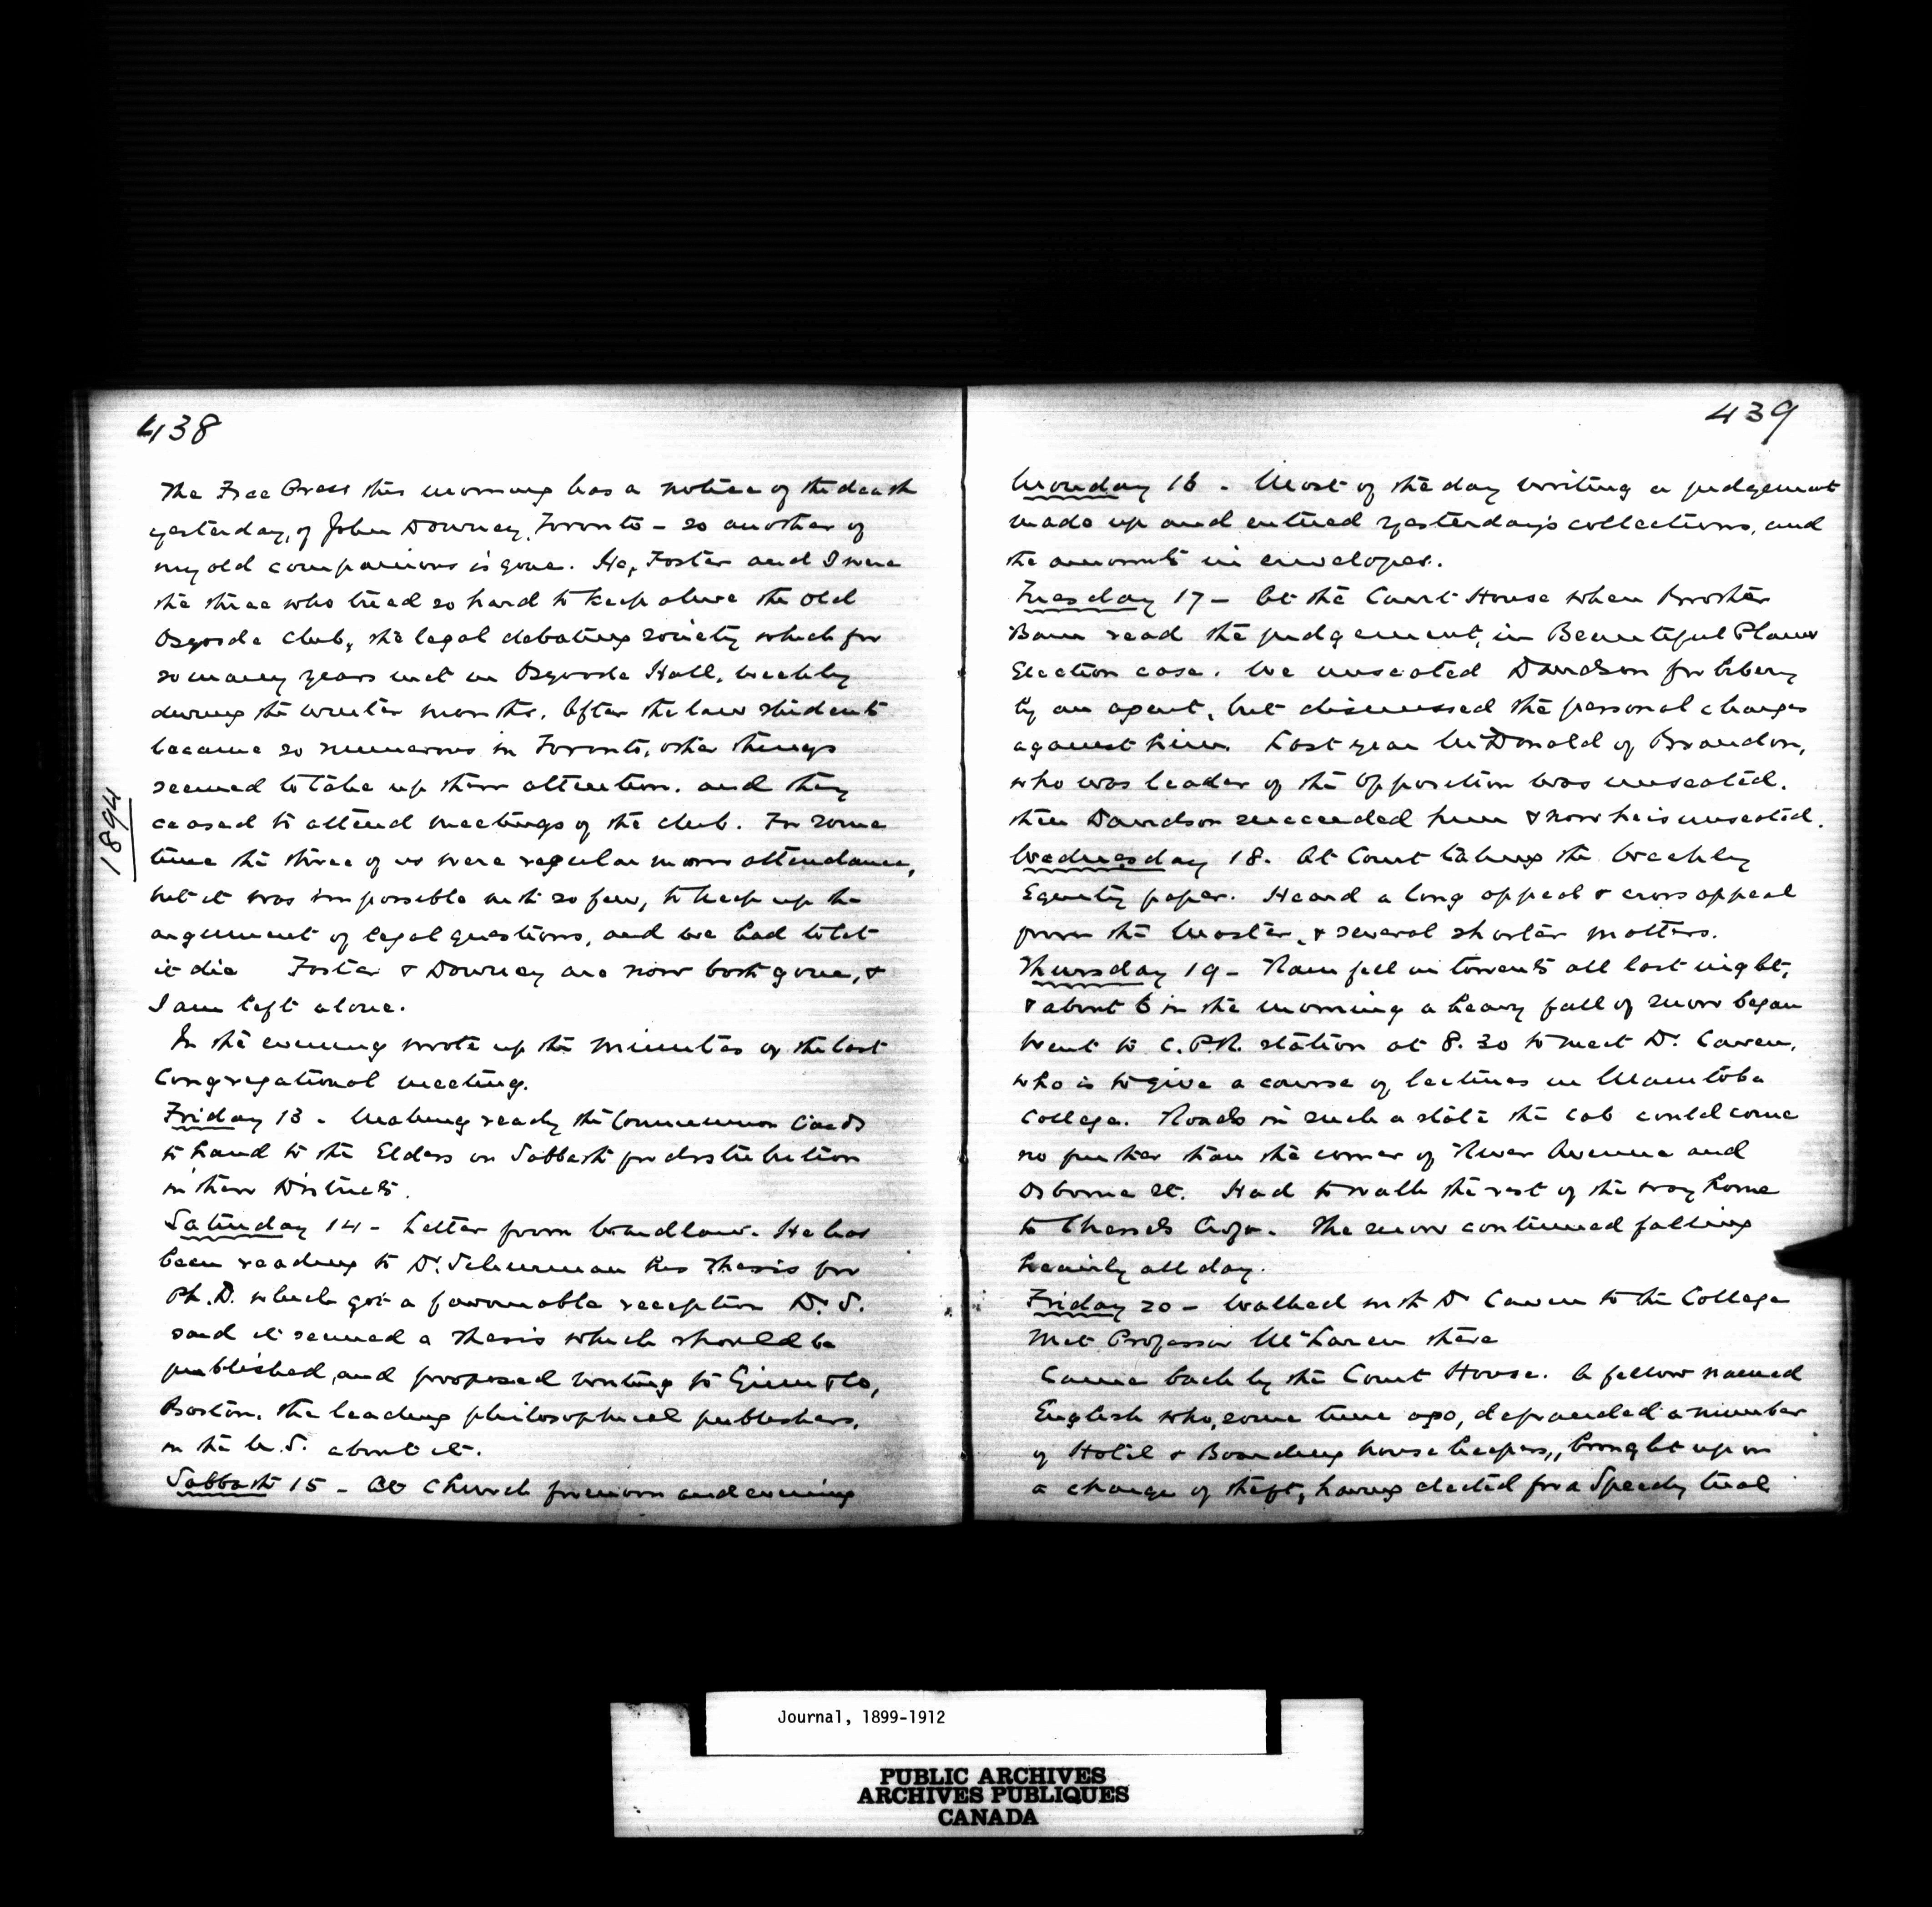 438
The Free Press this morning has a notice of the death
yesterday, of John Downey, Toronto - so another of
my old companions is gone. He, Foster and I were
the three who tried so hard to keep alive the old
Osgoode Club, the legal debating society which for
so many years met in Osgoode Hall, weekly
during the winter months. After the law students
became so numerous in Toronto, other things
seemed to take up their attention. and they
ceased to attend meetings of the club. For some
time the three of us were regular in our attendance,
but it was impossible with so few, to keep up the
argument of legal questions, and we had to let
it die Foster & Downey are now both gone, &
I am left alone.
In the evening wrote up the Minutes of the last
Congregational meeting.
Friday 13 - Making ready the Communion Cards
to hand to the Elders on Sabbath for distribution
in their Districts.
Saturday 14 - Letter from Wardlaw. He has
been reading to Dr. Schurman his Thesis for
Ph.D. which got a favourable reception Dr. S.
said it seemed a Thesis which should be
published, and proposed writing to Ginn & Co,
Boston, the leading philosophical publishers,
in the U.S. about it.
Sabbath 15 - At Church forenoon and evening
1894
439
Monday 16 - Most of the day writing a judgement
made up and entered yesterday's collections, and
the amounts in envelopes.
Tuesday 17 - At the Court House when Brother
Bain read the judgement, in Beautiful Plains
Election case. We unseated Davidson for bribery
by an agent, but dismissed the personal charges
against him. Last year McDonald of Brandon,
who was leader of the Opposition was unseated.
then Davidson succeeded him & now he is unseated.
Wednesday 18. At Court taking the Weekly
Equity paper. Heard a long appeal & cross appeal
from the Master, & several shorter matters.
Thursday 19 - Rain fell in torrents all last night,
& about 6 in the morning a heavy fall of snow began
Went to C.P.R. station at 8.30 to meet Dr. Caven,
who is to give a course of lectures in Manitoba
College. Roads in such a state the cab could come
no further than the corner of River Avenue and
Osborne St. Had to walk the rest of the way home
to The snow continued falling
heavily all day.
Friday 20 - Walked with Dr Caven to the College
Met Professor McLaren there
Came back by the Court House. A fellow named
English who, some time ago, defrauded a number
of Hotel & Boarding house keepers, brought up on
a charge of theft, having elected for a Speedy trial
Journal, 1899-1912
PUBLIC ARCHIVES
ARCHIVES PUBLIQUES
CANADA